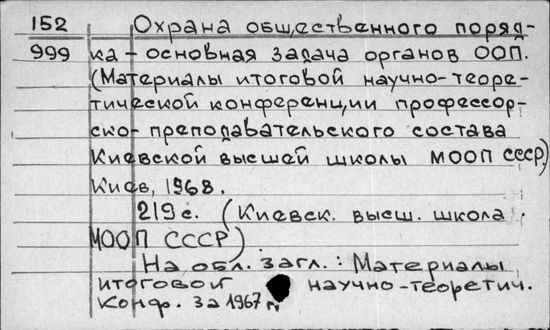 152 Охрана общественного поряд-
999 ка - основная задача органов ООП.
(Материалы итоговой научно-теоре-
тической конференции профессор-
ско-преподавательского состава
Киевской высшей школы МООП СССР)
Киев, 1968.
219 с. (Киевск. высш. школа
МООП СССР)
На обл. загл.: Материалы
итоговой научно-теоретич.
конф. за 1967 г.